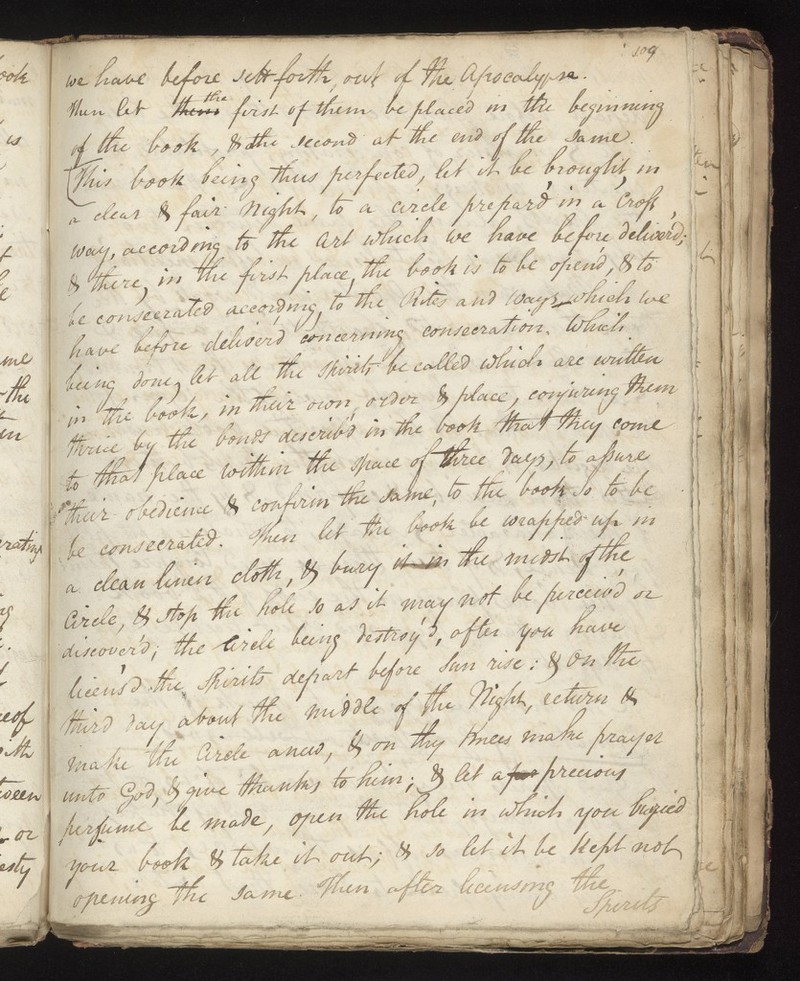 109
we have before sett forth, out of the Apocalypse.
Then let them the first of them be placed in the beginning
of the book, & the second at the end of the same.
This book being thus perfected, let it be brought, in
a clear & fair Night, to a circle prepar'd in a Cross
way, according to the Art which we have before deliver'd;
& there, in the first place, the book is to be open'd, & to
be consecrated according to the Rites and ways which we
have before deliver'd concerning consecration. Which
being done, let all the spirits be called which are written
in the book, in their own order & place, conjuring them
thrice by the bonds describ'd in the book that they come
to that place within the space of three days, to assure
their obedience & confirm the same, to the book so to be
be consecrated. Then let the book be wrapped up in
a clean linen cloth, & bury it in the midst of the
Circle, & stop the hole so as it may not be perceiv'd or
discover'd; the Circle being destroy'd, after you have
licens'd the Spirits depart before Sun rise: & On the
third day about the middle of the Night, return &
make the Circle anew, & on thy Knees make prayer
unto God, & give thanks to him; & let a precious
perfume be made, open the hole in which you buried
your book & take it out; & so let it be Kept not
opening the same. Then after licensing the
Spirits